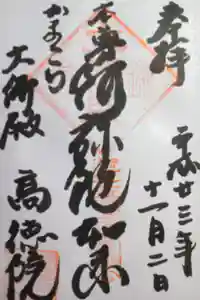 奉拝
平成廿三年
十一月二日
本尊阿弥陀如来
かまくら
大御殿
高徳院